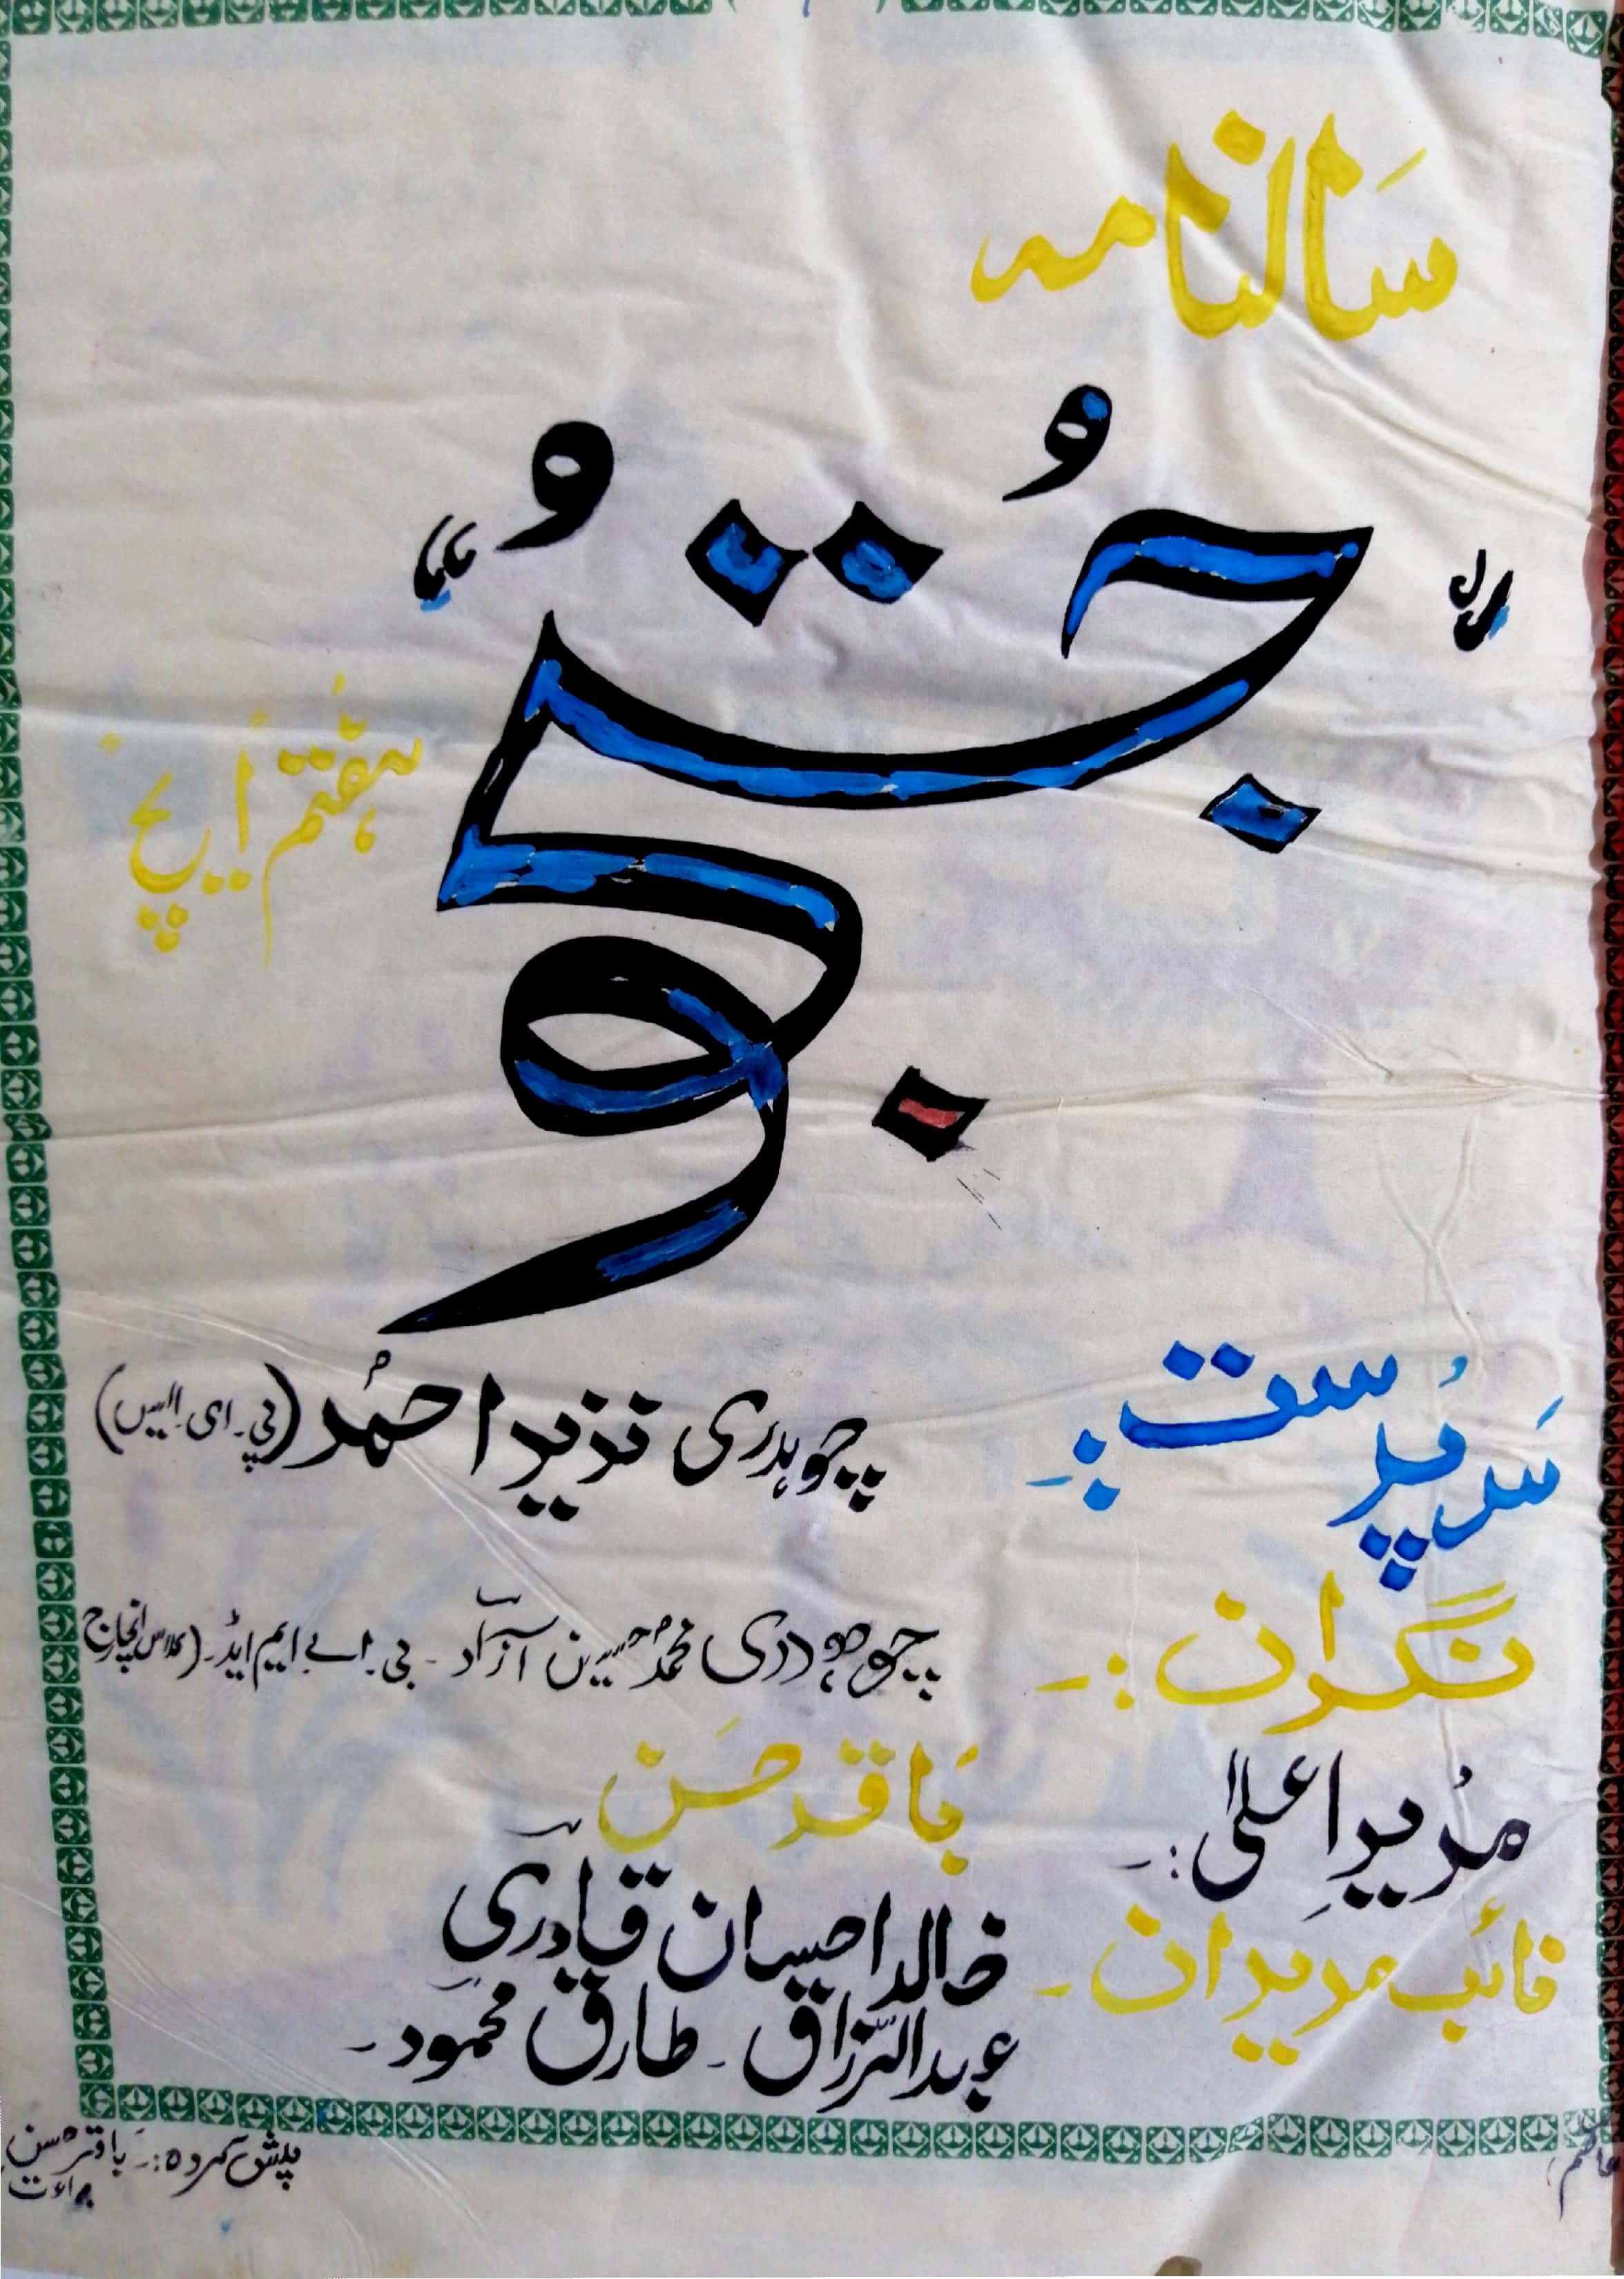 سالنامہ
"جُستجُو"
ہفتم ایچ
سرپرست :۔ چوہدری نذیر احمد (پی۔ای۔ایس)
نگران :۔ چوہدری محمد حسین آزاد ۔ بی۔اے۔ایم ایڈ۔ (کلاس انچارج
مُدیرِ اعلیٰ :۔ باقر حسن
نائب مدیران ۔ خالد احسان قادری
عبدالرّزاق ۔ طارق محمود ۔
پیش کردہ :۔ باقر حسن